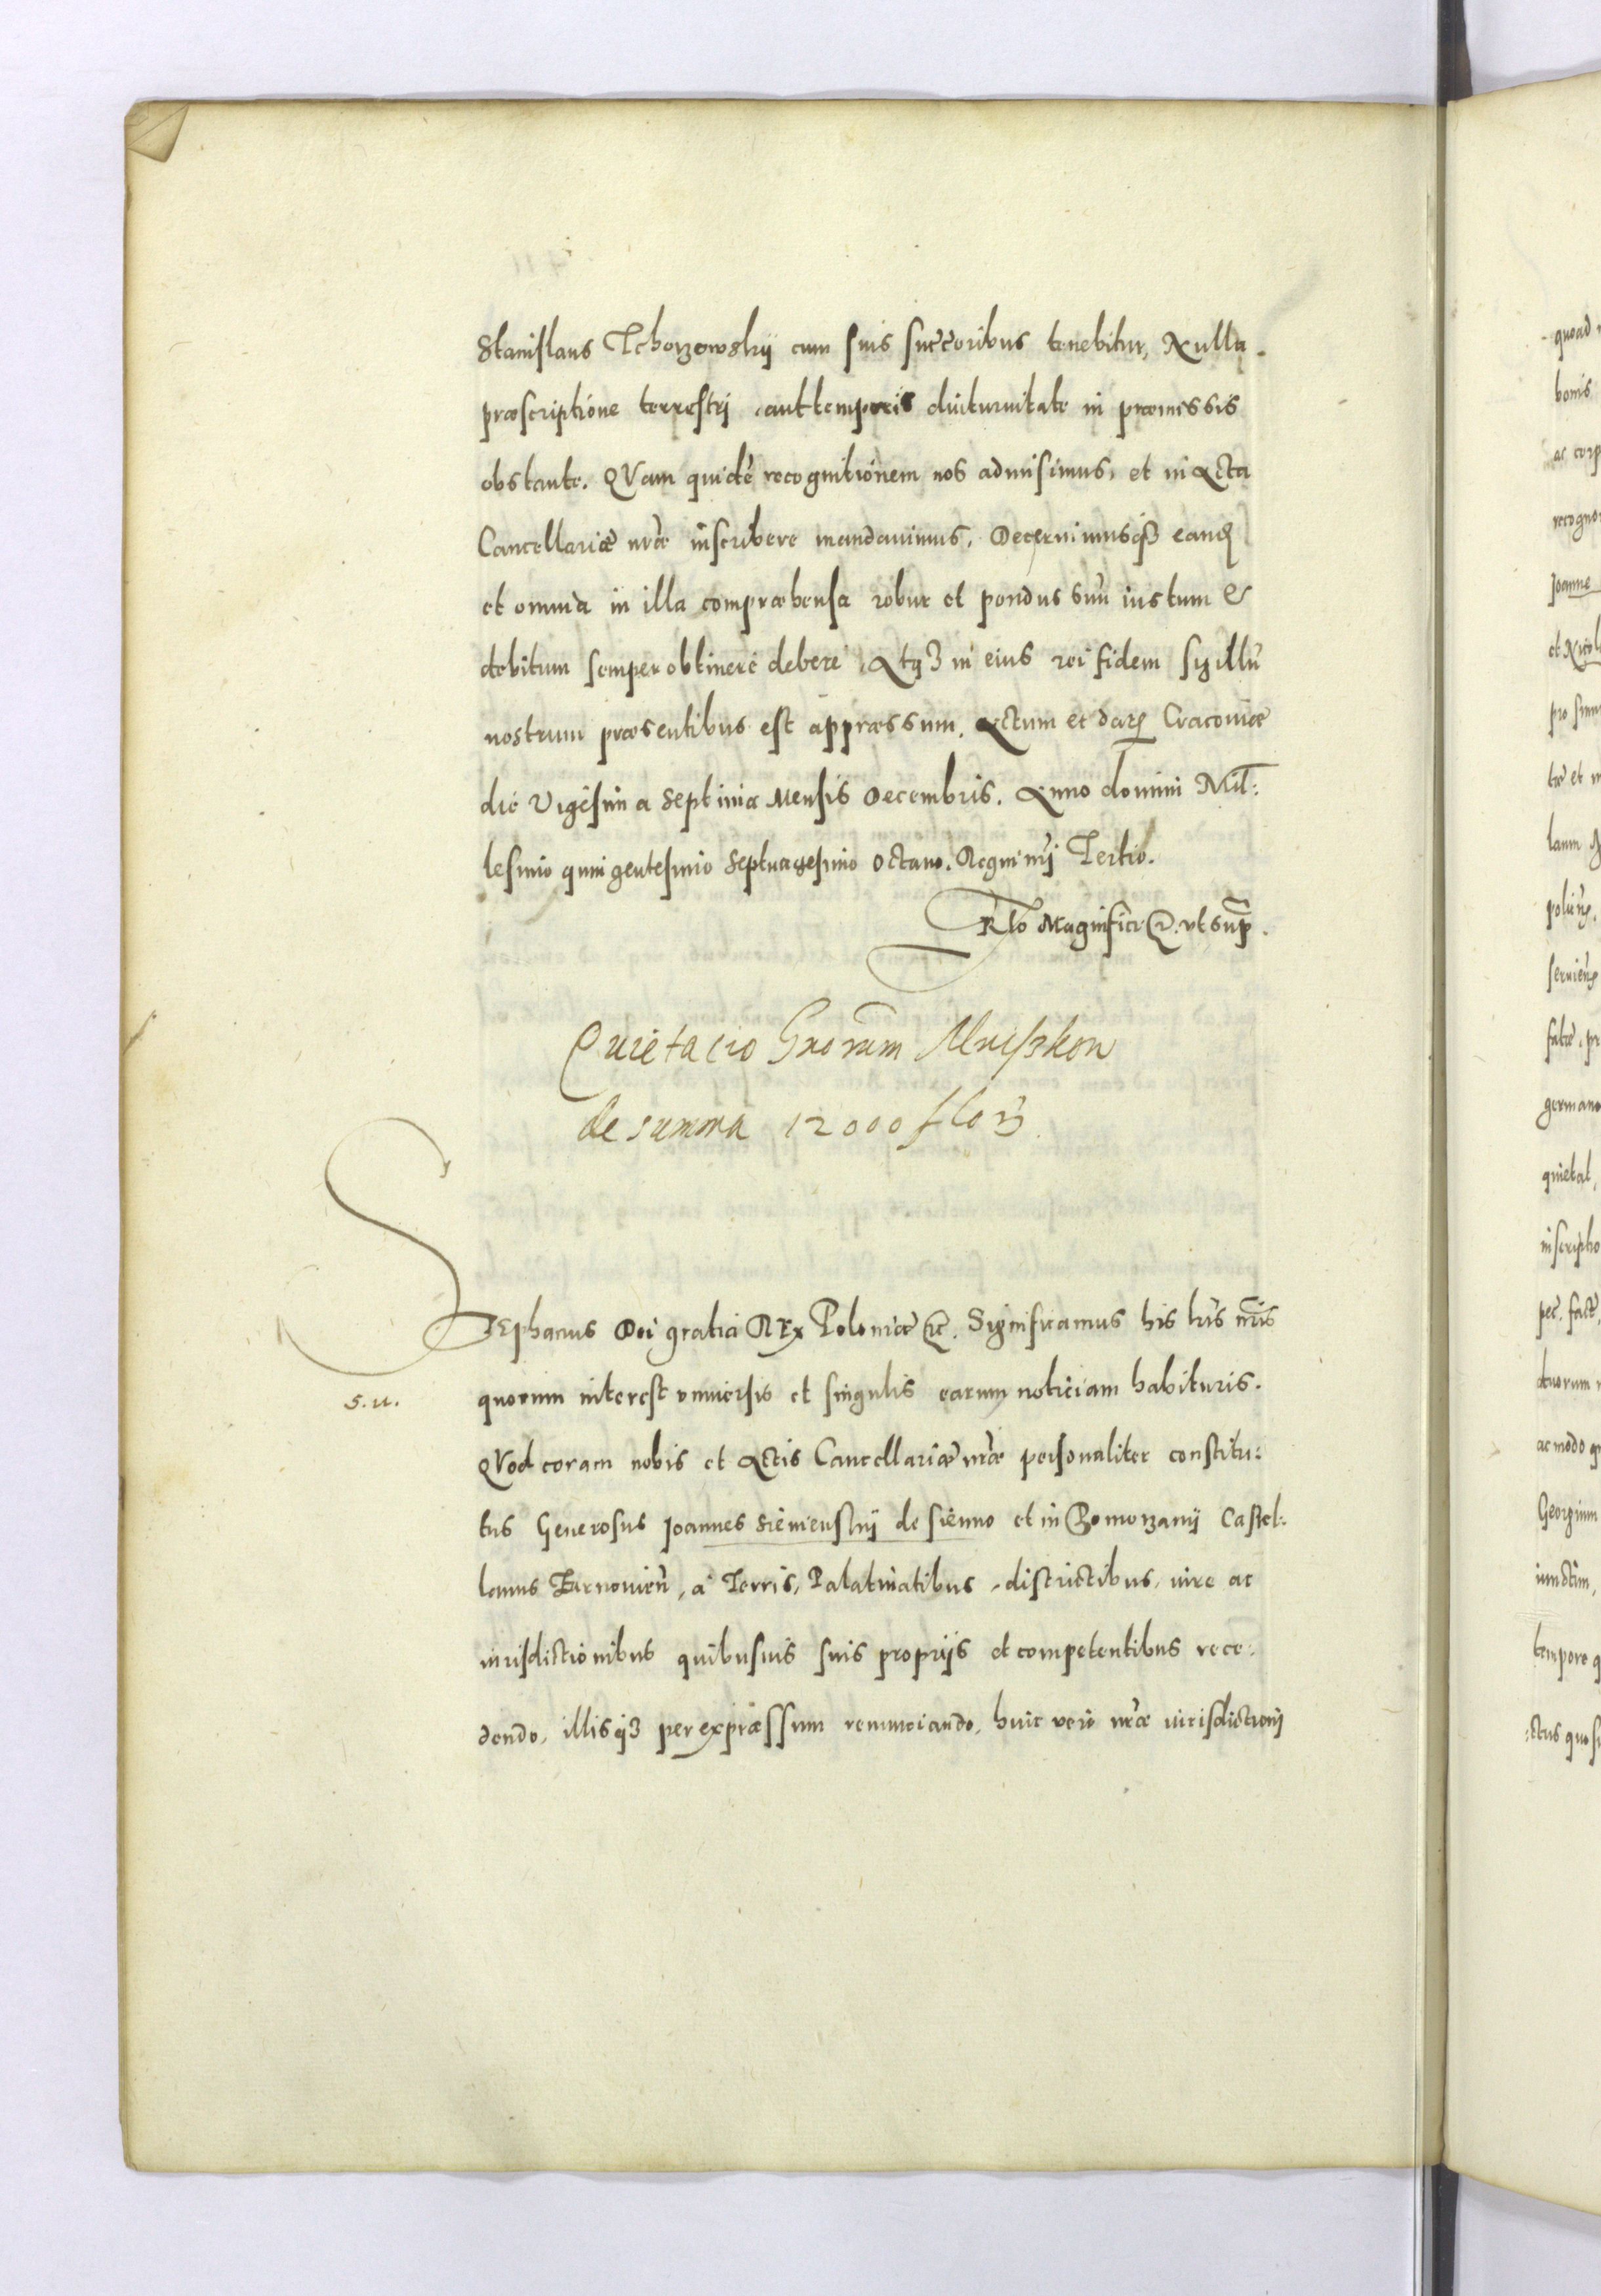 Stanislaus Tchorzowskÿ cum suis succ̃oribus tenebitur, Nulla
præscriptione terrestrj aut temporis diuturnitate in præmissis
obstante. QVam quidẽ recognitionem nos admisimus, et in Acta
Cancellariæ nr̃æ inscribere mandauimus. Decernimusq₃ eandẽ
et omnia in illa compræhensa robur et pondus suũ iustum &
debitum semper obtinere debere Atq₃ in eius rei fidem sigillũ
nostrum præsentibus est appræssum. Actum et datʒ Cracouiæ
die Vigesima Septima Mensis Decembris. Anno domini Mil:
lesimo quingentesimo Septuagesimo Octauo. Regni nrj Tertio.
Rlo Magnifici &c. vt sup̃.
Quietacio Gnorum
de summa 12000 flo
STephanus Dei gratia REx Poloniæ &c. Significamus his lr̃is nr̃is
quorum interest vniuersis et singulis earum noticiam habituris.
s. u.
QVod coram nobis et Actis Cancellariæ nr̃æ personaliter constitu:
tus Generosus Joannes Sienienskÿ de Sienno et in Pomorzanÿ Castel:
lanus Tarnouieñ, a Terris, Palatinatibus, districtibus, iure ac
iurisdictionibus quibusuis suis proprijs et competentibus rece:
dendo, illisq₃ per expræssum renunciando, huic vero nr̃æ iurisdictionj
quoad
bonis
ac corp
recogno
Joanne
et Nicol
tæ et
lanm
fatæ, pr
germano
quietat,
inscriptio
pec. factẽ
ac modo
Georgium
iunctim,
tempore q
:ctus quos